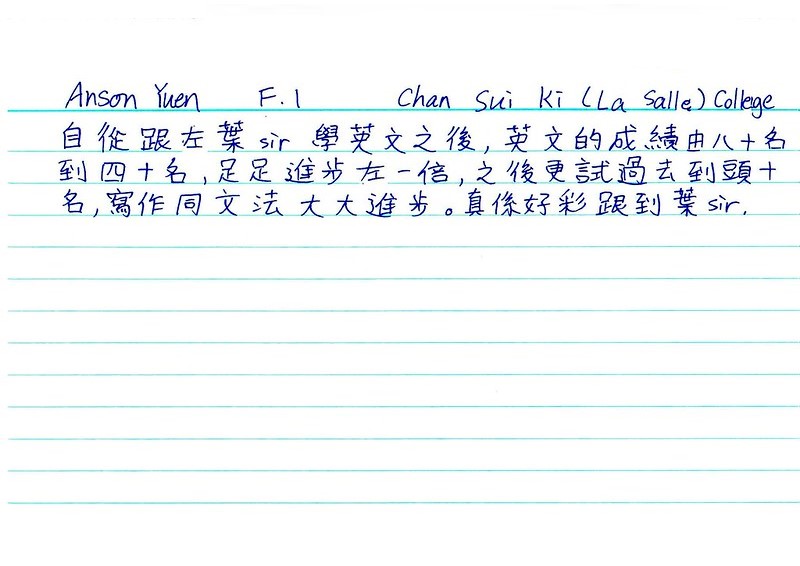 Anson Yuen F.1 Chan Sui Ki (La Salle) College
自從跟左葉sir學英文之後,英文的成績由八十名
到四十名,足足進步左一倍,之後更試過去到頭十
名,寫作同文法大大進步。真係好彩跟到葉sir.